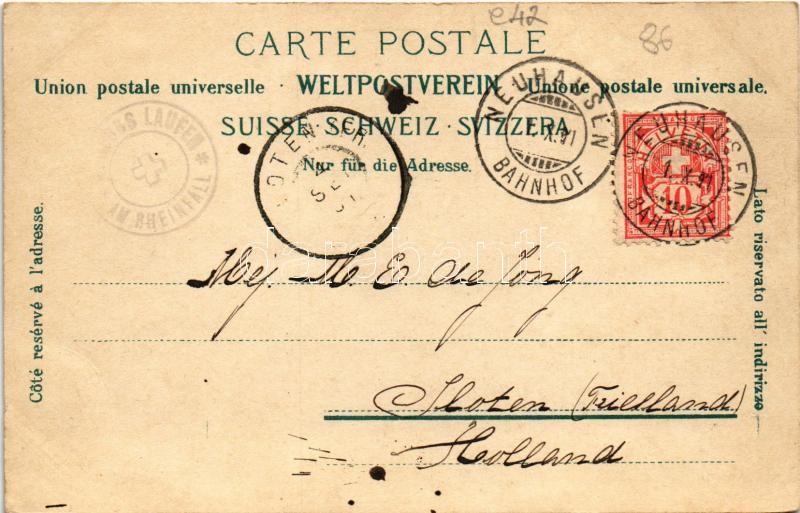 e42
86
CARTE POSTALE
Union postale universelle · WELTPOSTVEREIN · Unione postale universale.
SUISSE·SCHWEIZ·SVIZZERA
Nur für die Adresse.
LAUFEN
AM RHEINFALL
NEUHAUSEN
BAHNHOF
NEUHAUSEN
BAHNHOF
10
Mej. M. E. de Jong
Sloten (Friesland)
Holland
Côté reservé à l'adresse.
Lato riservato all' indirizzo
darabanth